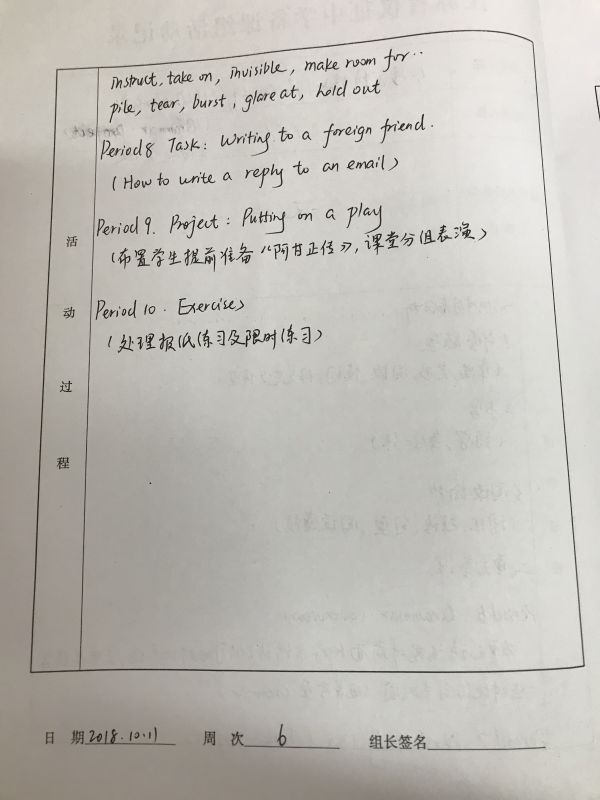 instruct, take on, invisible, make room for..
pile, tear, burst, glare at, hold out
Period 8 Task: Writing to a foreign friend.
(How to write a reply to an email)
Period 9. Project: Putting on a play
(布置学生提前准备《阿甘正传》,课堂分组表演)
Period 10. Exercises
(处理报纸练习及限时练习)
活
动
过
程
日 期 2018.10.11 周 次 6 组长签名